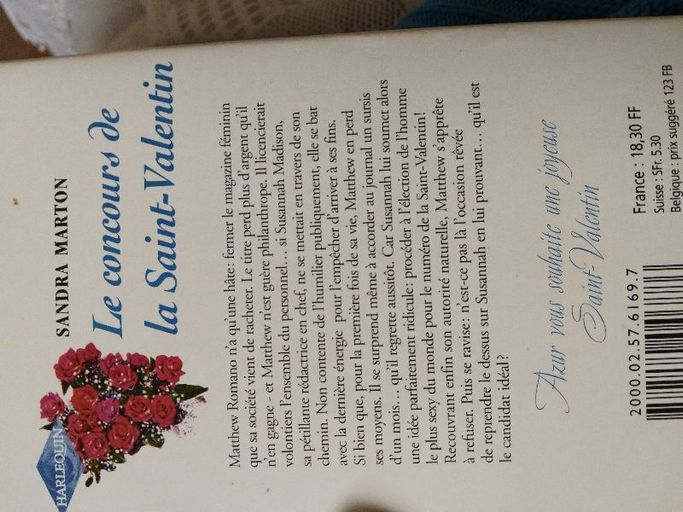 HARLEQUIN
SANDRA MARTON
Le concours de
la Saint-Valentin
Matthew Romano n'a qu'une hâte : fermer le magazine féminin
que sa société vient de racheter. Le titre perd plus d'argent qu'il
n'en gagne - et Matthew n'est guère philanthrope. Il licencierait
volontiers l'ensemble du personnel... si Susannah Madison,
sa pétillante rédactrice en chef, ne se mettait en travers de son
chemin. Non contente de l'humilier publiquement, elle se bat
avec la dernière énergie pour l'empêcher d'arriver à ses fins.
Si bien que, pour la première fois de sa vie, Matthew en perd
ses moyens. Il se surprend même à accorder au journal un sursis
d'un mois... qu'il regrette aussitôt. Car Susannah lui soumet alors
une idée parfaitement ridicule : procéder à l'élection de l'homme
le plus sexy du monde pour le numéro de la Saint-Valentin!
Recouvrant enfin son autorité naturelle, Matthew s'apprête
à refuser. Puis se ravise : n'est-ce pas là l'occasion rêvée
de reprendre le dessus sur Susannah en lui prouvant... qu'il est
le candidat idéal ?
Azur vous souhaite une joyeuse
Saint-Valentin
2000.02.57.6169.7
France : 18,30 FF
Suisse : SFr. 5.30
Belgique : prix suggéré 123 FB